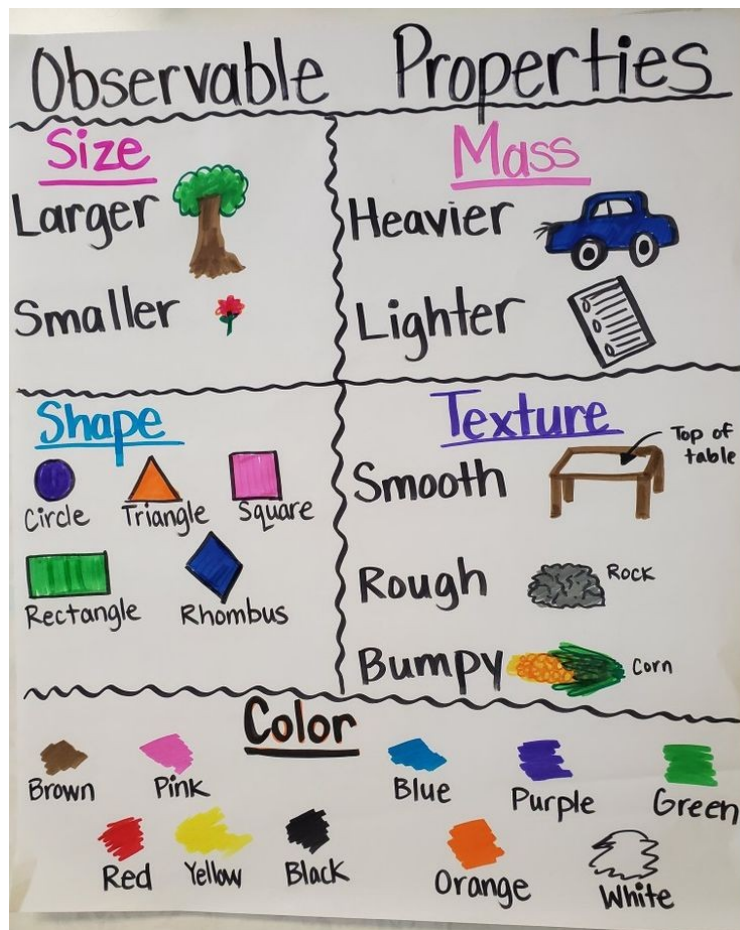 Observable Properties
Size
Larger
Smaller
Mass
Heavier
Lighter
Shape
Circle Triangle Square
Rectangle Rhombus
Texture
Smooth
Top of
table
Rough
Rock
Bumpy
Corn
Color
Brown Pink Blue Purple Green
Red Yellow Black Orange White